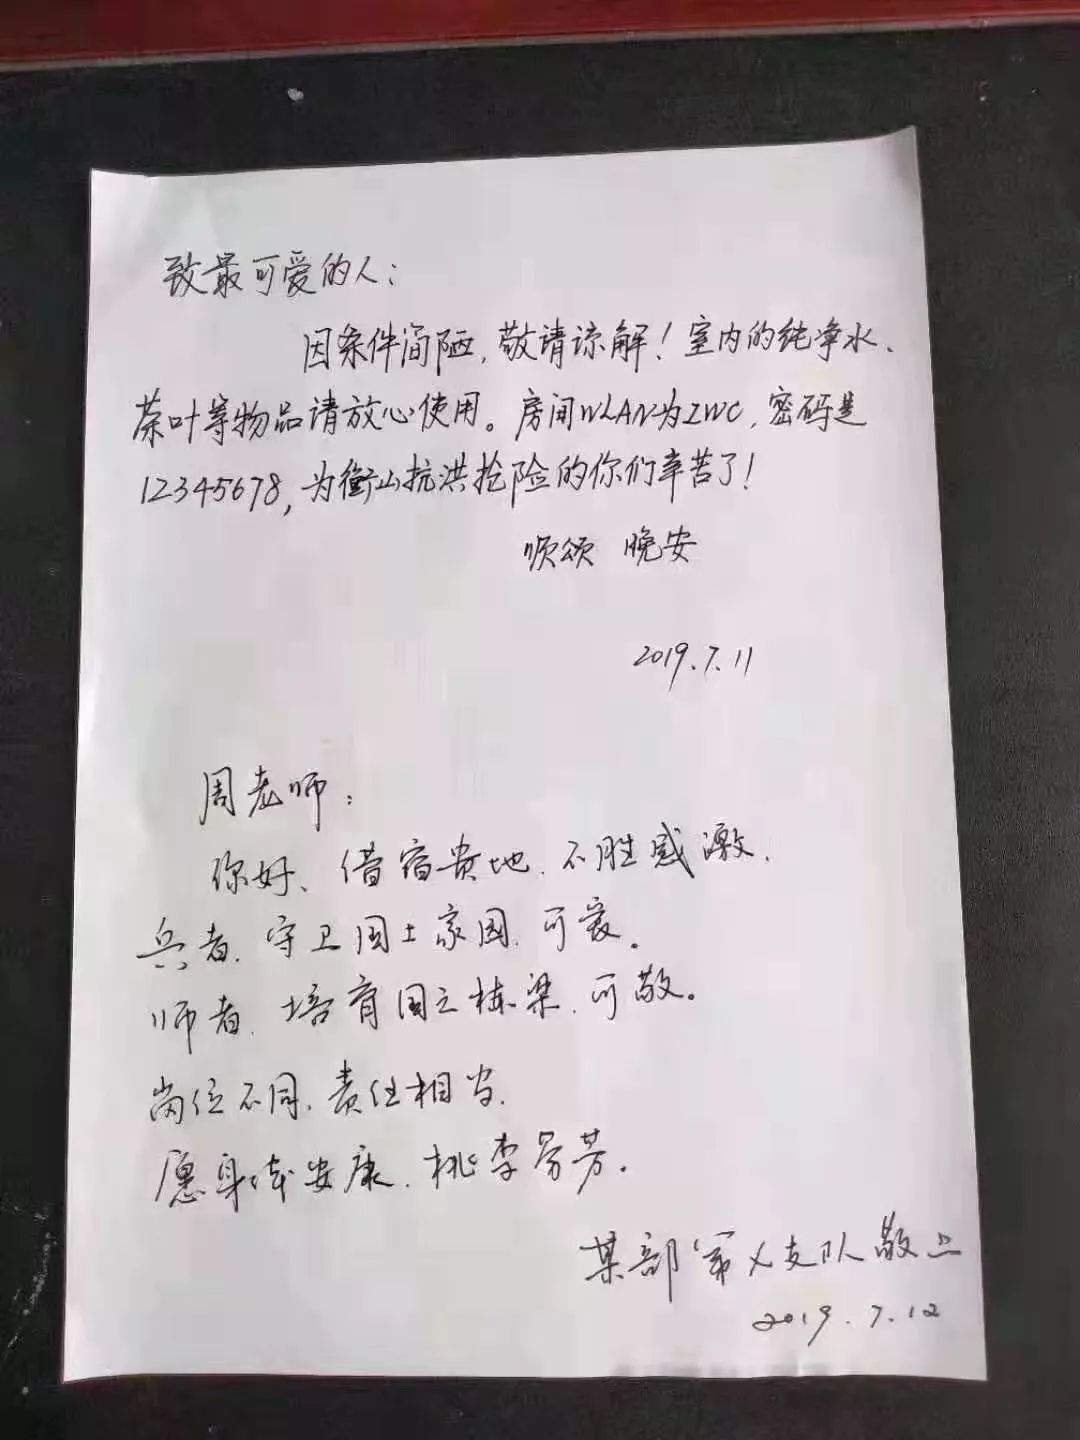 致最可爱的人：
因条件简陋，敬请谅解！室内的纯净水、
茶叶等物品请放心使用。房间WLAN为ZWC，密码是
12345678，为衡山抗洪抢险的你们辛苦了！
顺颂 晚安
2019.7.11
周老师：
你好、借宿贵地、不胜感激、
兵者、守卫国土家园、可爱。
师者、培育国之栋梁、可敬。
岗位不同、责任相当、
愿身体安康、桃李芬芳。
某部第X支队敬上
2019.7.12